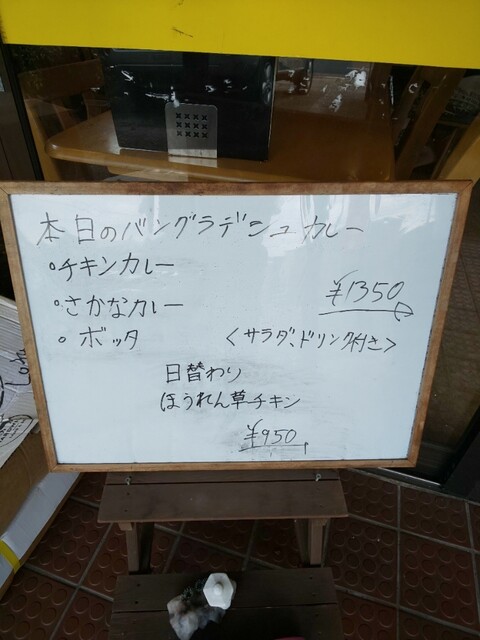 本日のバングラデシュカレー
・チキンカレー
・さかなカレー
¥1350
・ボッタ
＜サラダ、ドリンク付き＞
日替わり
ほうれん草チキン
¥950